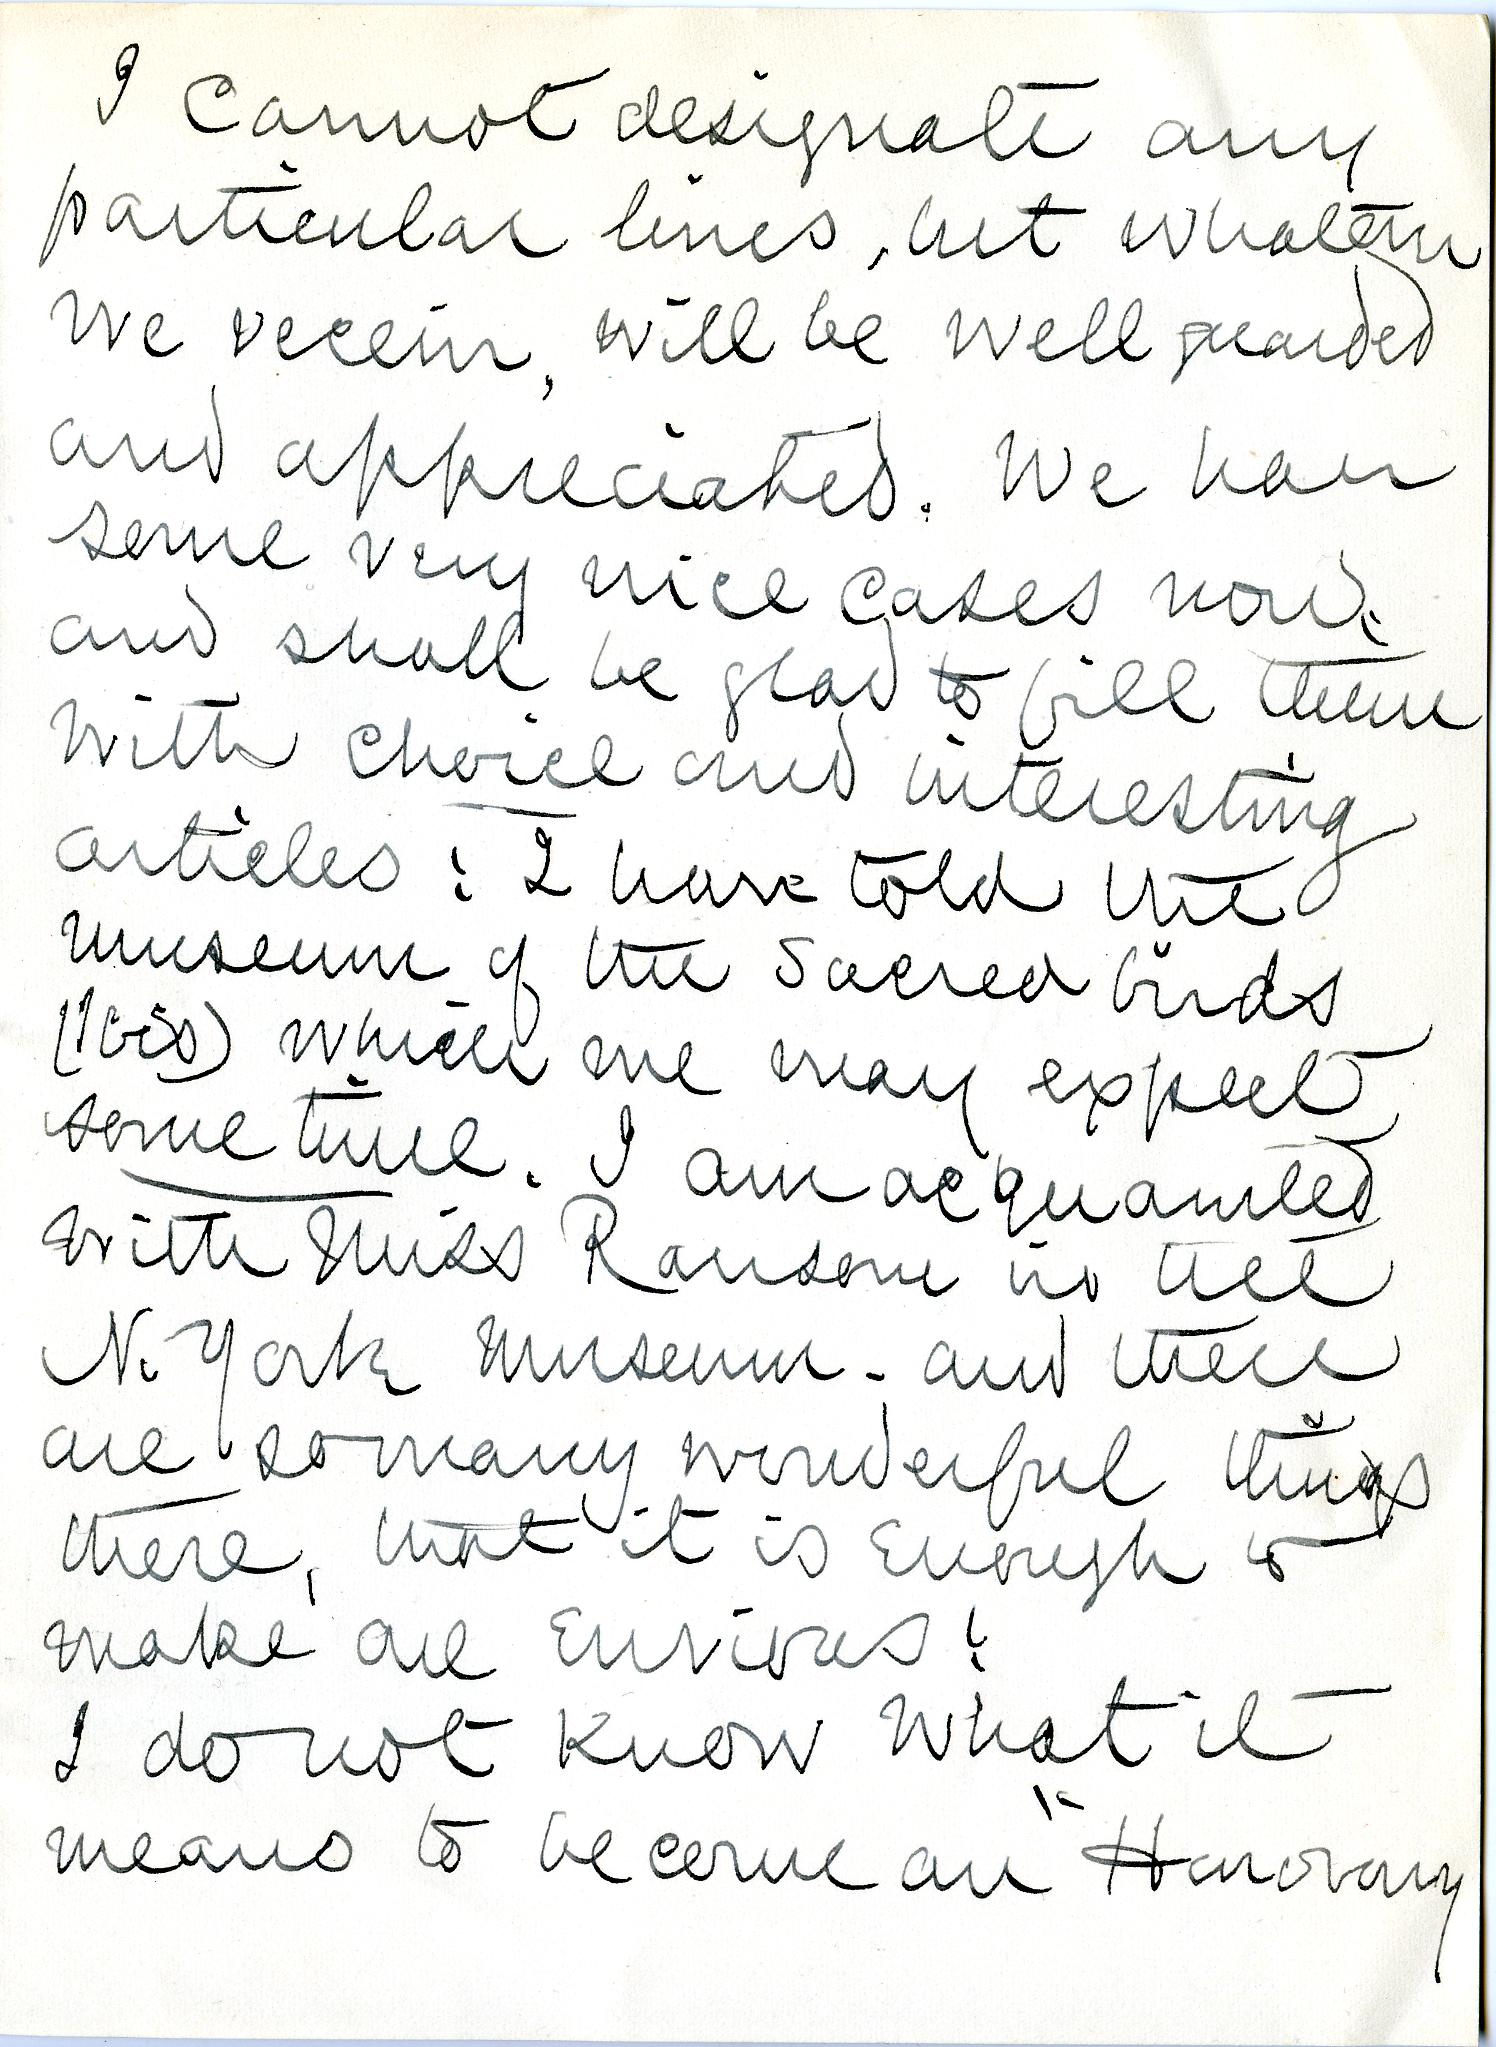 I cannot designate any
particular lines, but whatever
we receive, will be well guarded
and appreciated. We have
some very nice cases now,
and shall be glad to fill them
with choice and interesting
articles! I have told the
museum of the Sacred birds
(Ibis) which we may expect
some time. I am acquainted
with Miss Ransom in the
N. York Museum - and there
are so many wonderful things
there, that it is enough to
make one envious!
I do not know what it
means to become an "Honorary